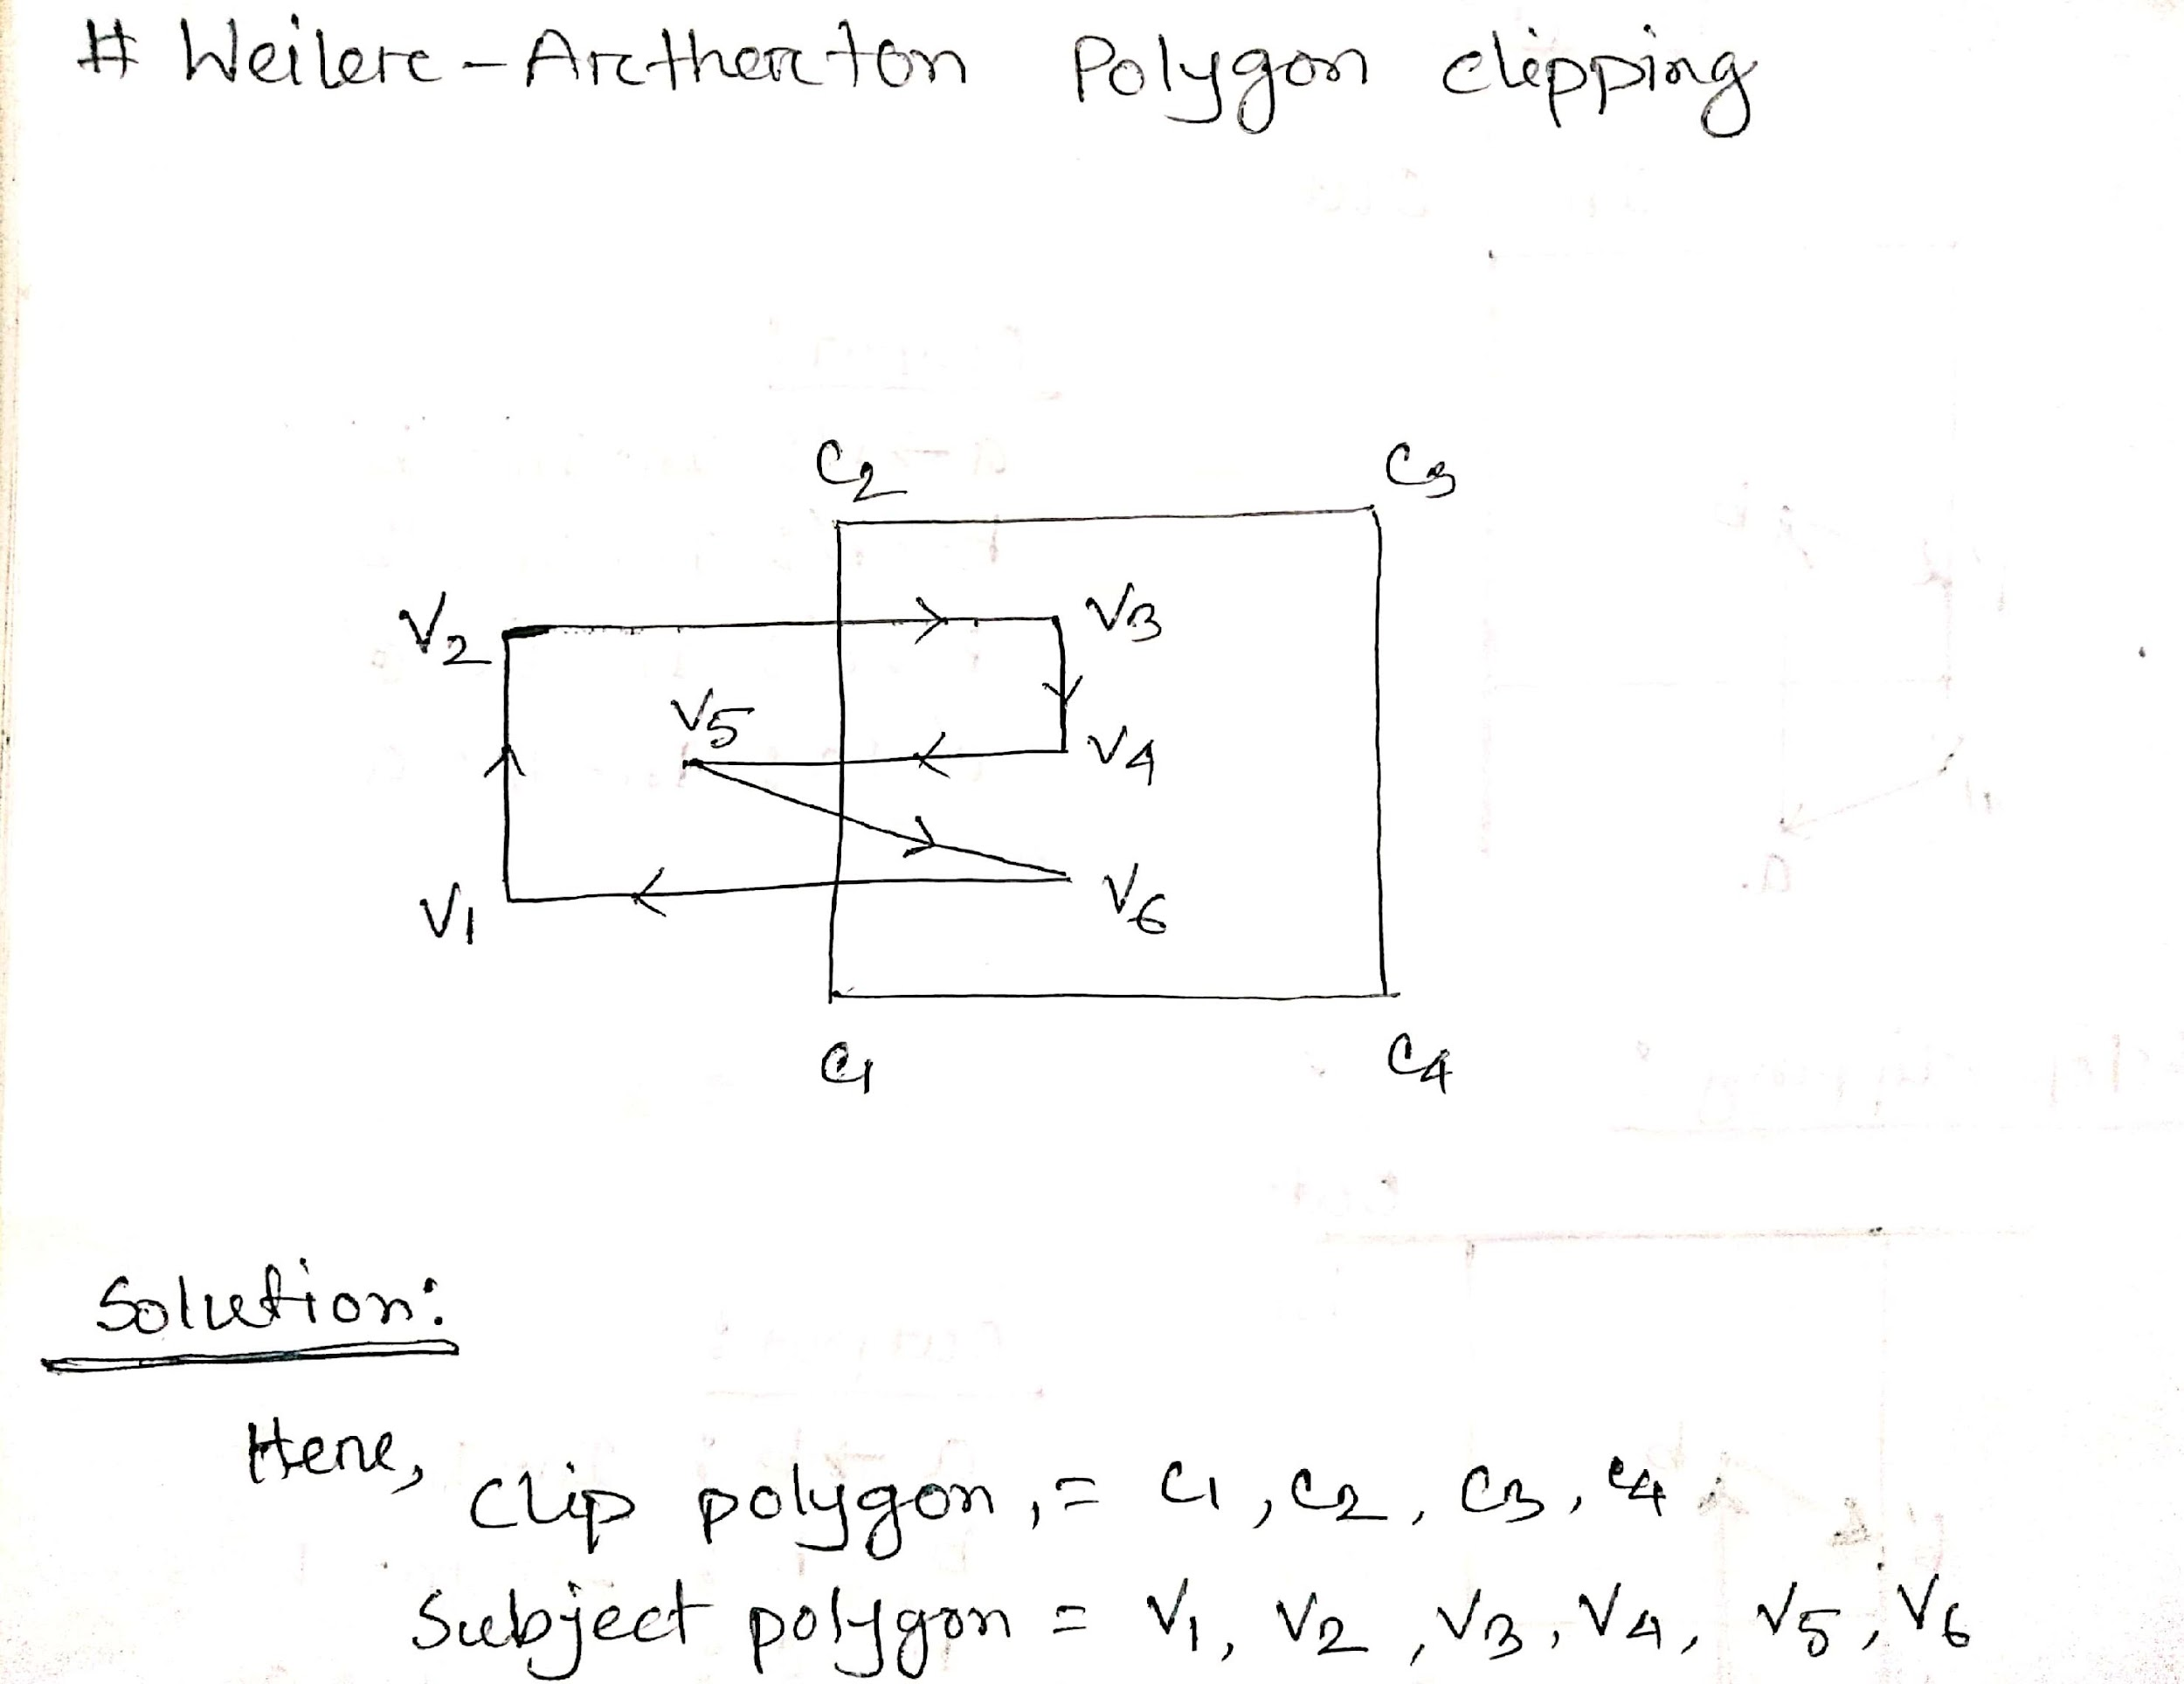 # Weilere-Arctherton Polygon clipping
C2 C3
V2 V3
V5
V4
V1 V6
C1 C4
Solution:
Here,
Clip polygon, = C1, C2, C3, C4
Subject polygon = V1, V2, V3, V4, V5, V6